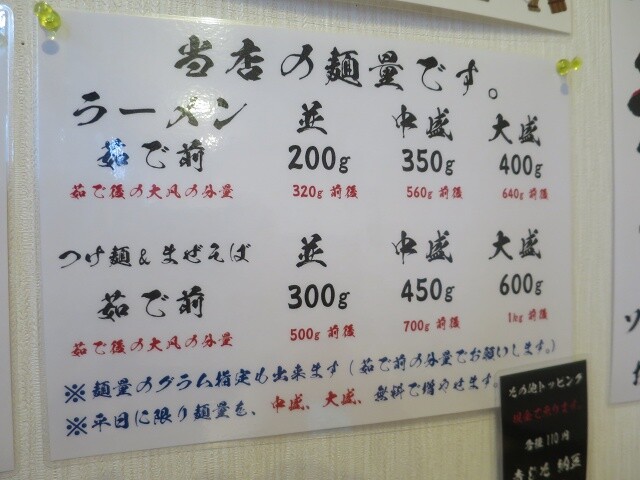 当店の麺量です。
ラーメン 並 中盛 大盛
茹で前 200g 350g 400g
茹で後の大凡の分量 320g 前後 560g 前後 640g 前後
つけ麺 & まぜそば 並 中盛 大盛
茹で前 300g 450g 600g
茹で後の大凡の分量 500g 前後 700g 前後 1kg 前後
※麺量のグラム指定も出来ます(茹で前の分量でお願いします。)
※平日に限り麺量を、中盛、大盛、無料で増やせます。
その他トッピング
現金で承ります。
各種 110円